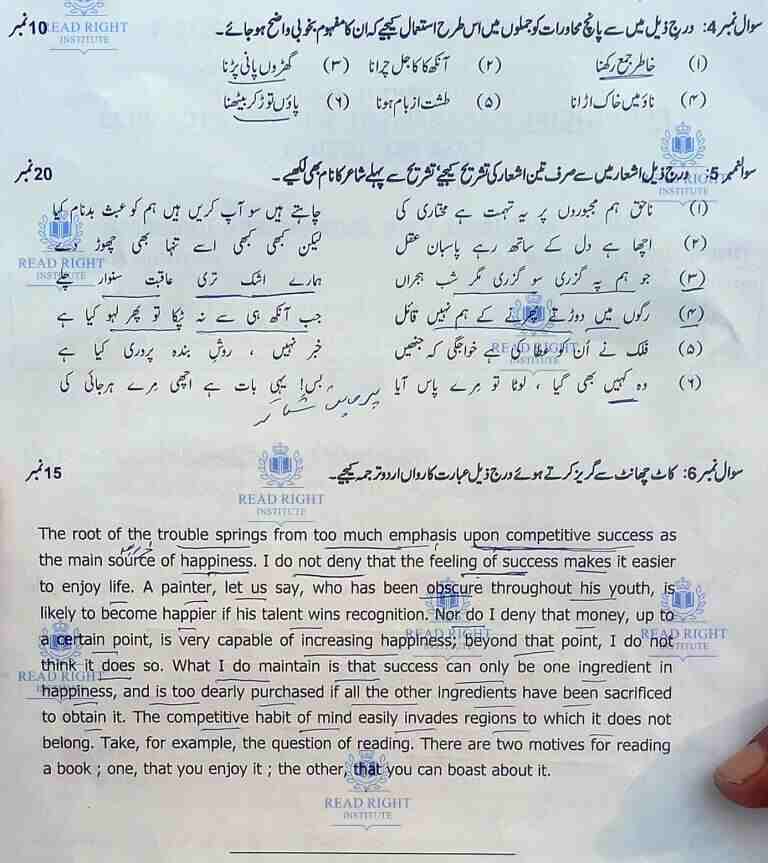 سوال نمبر 4: درج ذیل میں سے پانچ محاورات کو جملوں میں اس طرح استعمال کیجیے کہ ان کا مفہوم بخوبی واضح ہو جائے۔ 10 نمبر
(۱) خاطر جمع رکھنا (۲) آنکھ کا کاجل چرانا (۳) گھڑوں پانی پڑنا
(۴) ناؤ میں خاک اڑانا (۵) طشت از بام ہونا (۶) پاؤں توڑ کر بیٹھنا
سوال نمبر 5: درج ذیل اشعار میں سے صرف تین اشعار کی تشریح کیجیے، تشریح سے پہلے شاعر کا نام بھی لکھیے۔ 20 نمبر
(۱) ناحق ہم مجبوروں پر یہ تہمت ہے مختاری کی چاہتے ہیں سو آپ کریں ہیں ہم کو عبث بدنام کیا
(۲) اچھا ہے دل کے ساتھ رہے پاسبان عقل لیکن کبھی کبھی اسے تنہا بھی چھوڑ دے
(۳) جو ہم پہ گزری سو گزری مگر شب ہجراں ہمارے اشک تری عاقبت سنوار چلے
(۴) رگوں میں دوڑتے پھرنے کے ہم نہیں قائل جب آنکھ ہی سے نہ ٹپکا تو پھر لہو کیا ہے
(۵) فلک نے اُن کو عطا کی ہے خواجگی کہ جنھیں خبر نہیں ، روشِ بندہ پروری کیا ہے
(۶) وہ کہیں بھی گیا ، لوٹا تو مِرے پاس آیا بس! یہی بات ہے اچھی مِرے ہرجائی کی
سوال نمبر 6: کاٹ چھانٹ سے گریز کرتے ہوئے درج ذیل عبارت کا رواں اردو ترجمہ کیجیے۔ 15 نمبر
The root of the trouble springs from too much emphasis upon competitive success as
the main source of happiness. I do not deny that the feeling of success makes it easier
to enjoy life. A painter, let us say, who has been obscure throughout his youth, is
likely to become happier if his talent wins recognition. Nor do I deny that money, up to
a certain point, is very capable of increasing happiness; beyond that point, I do not
think it does so. What I do maintain is that success can only be one ingredient in
happiness, and is too dearly purchased if all the other ingredients have been sacrificed
to obtain it. The competitive habit of mind easily invades regions to which it does not
belong. Take, for example, the question of reading. There are two motives for reading
a book ; one, that you enjoy it ; the other, that you can boast about it.
READ RIGHT
INSTITUTE
READ RIGHT
INSTITUTE
READ RIGHT
INSTITUTE
READ RIGHT
INSTITUTE
READ RIGHT
INSTITUTE
READ RIGHT
INSTITUTE
READ RIGHT
INSTITUTE
READ RIGHT
INSTITUTE
READ RIGHT
INSTITUTE